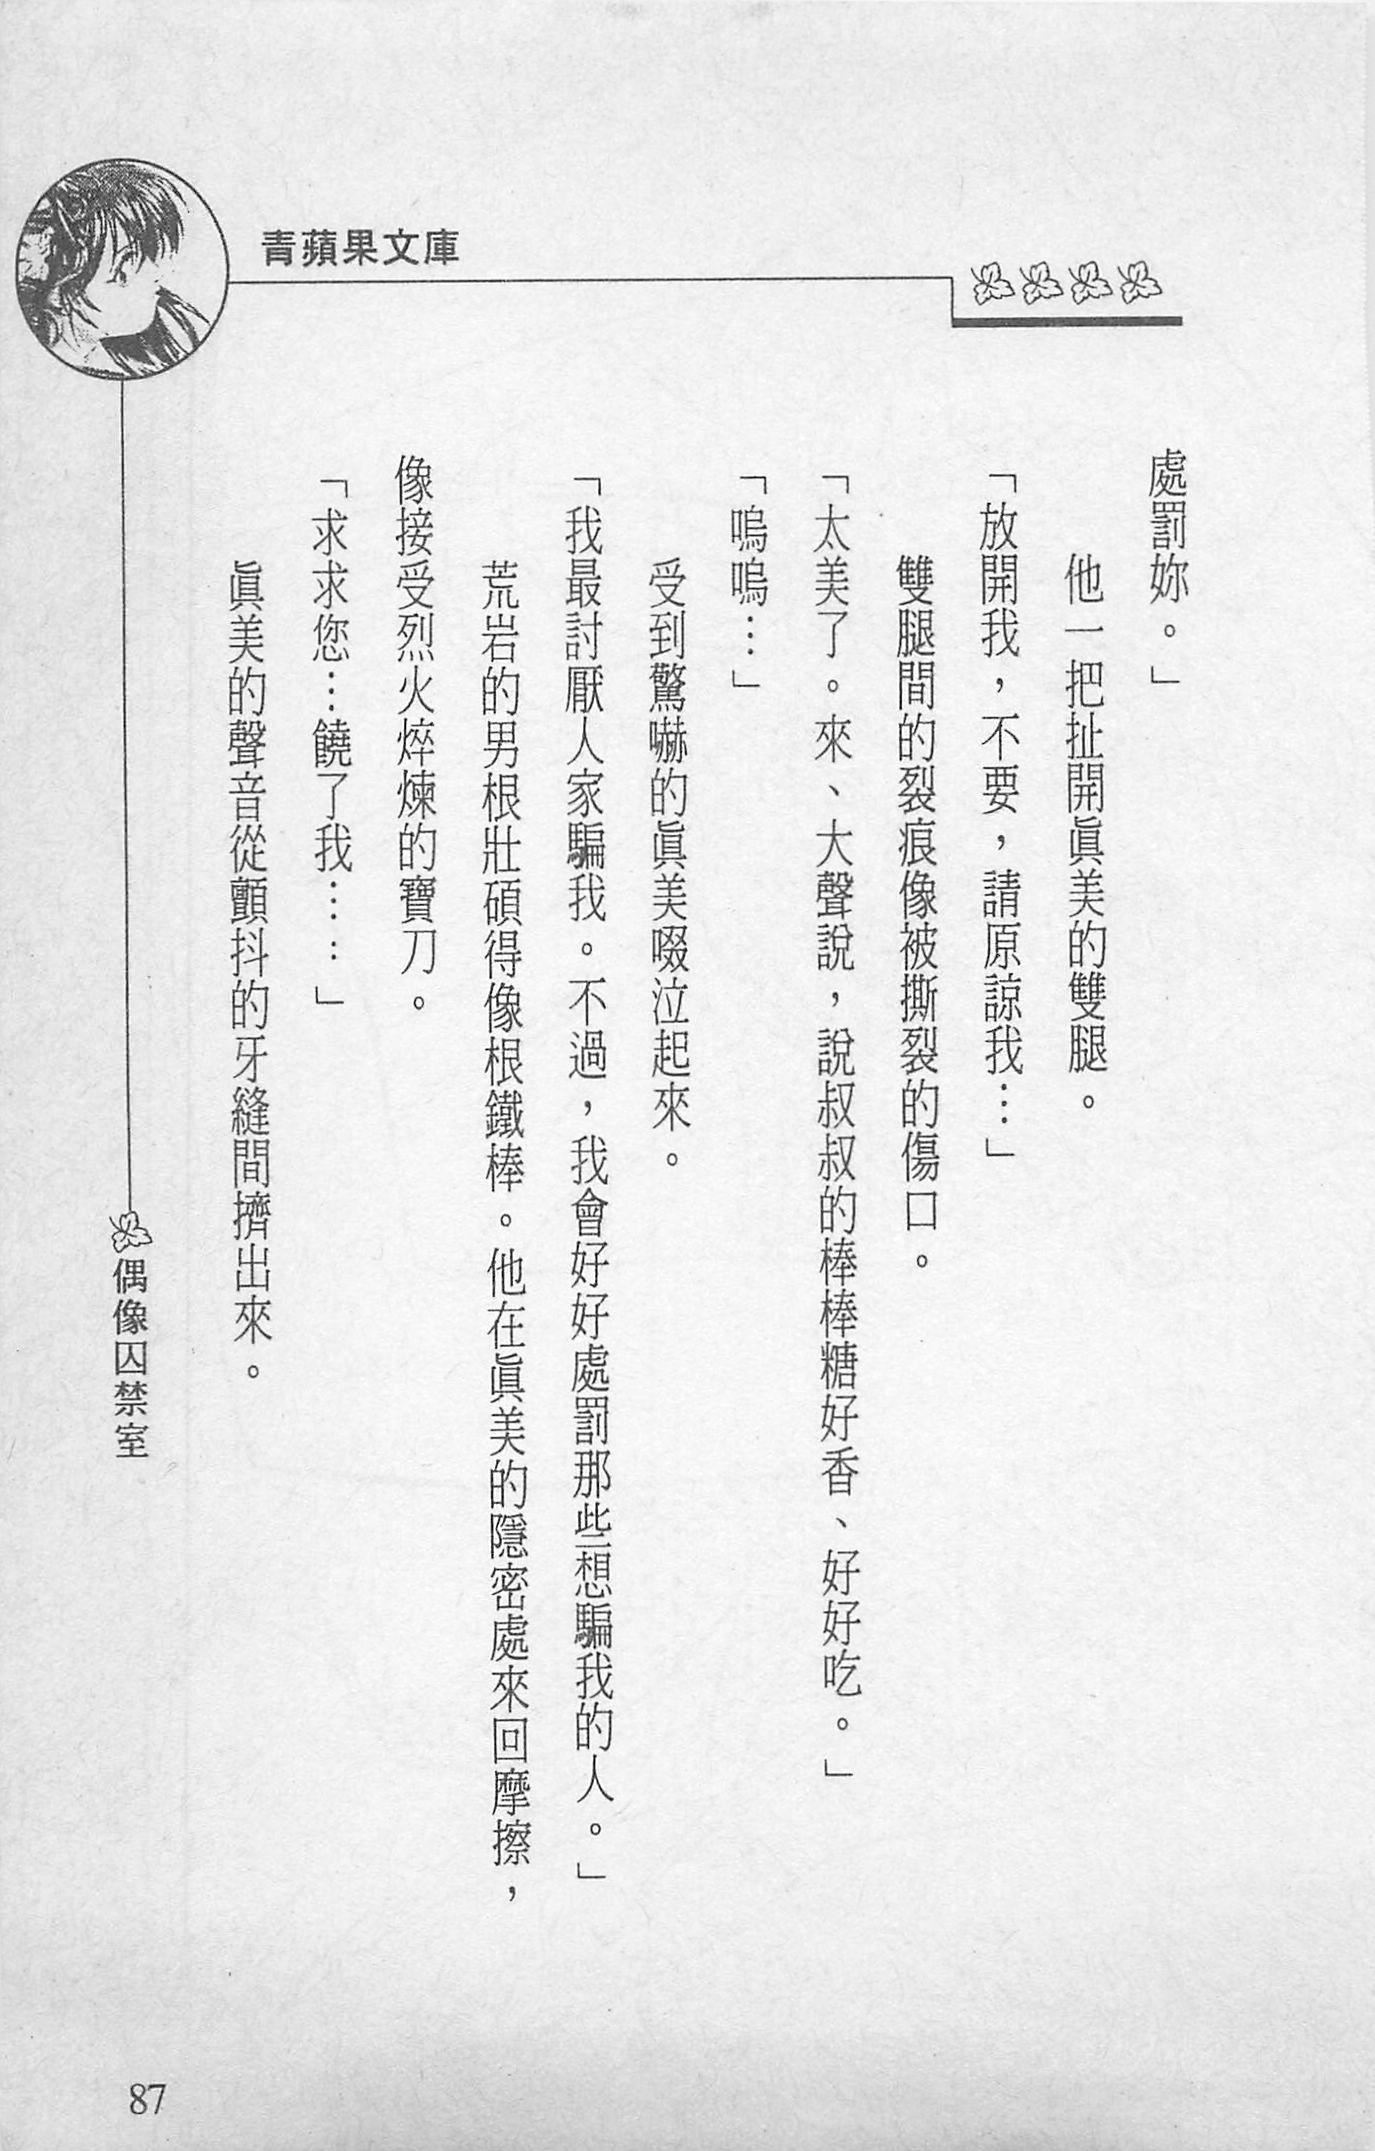 青蘋果文庫
處罰妳。」
他一把扯開眞美的雙腿。
「放開我，不要，請原諒我…」
雙腿間的裂痕像被撕裂的傷口。
「太美了。來、大聲說，說叔叔的棒棒糖好香、好好吃。」
「嗚嗚…」
受到驚嚇的眞美啜泣起來。
「我最討厭人家騙我。不過，我會好好處罰那些想騙我的人。」
荒岩的男根壯碩得像根鐵棒。他在眞美的隱密處來回摩擦，
像接受烈火焠煉的寶刀。
「求求您…饒了我……」
眞美的聲音從顫抖的牙縫間擠出來。
偶像囚禁室
87